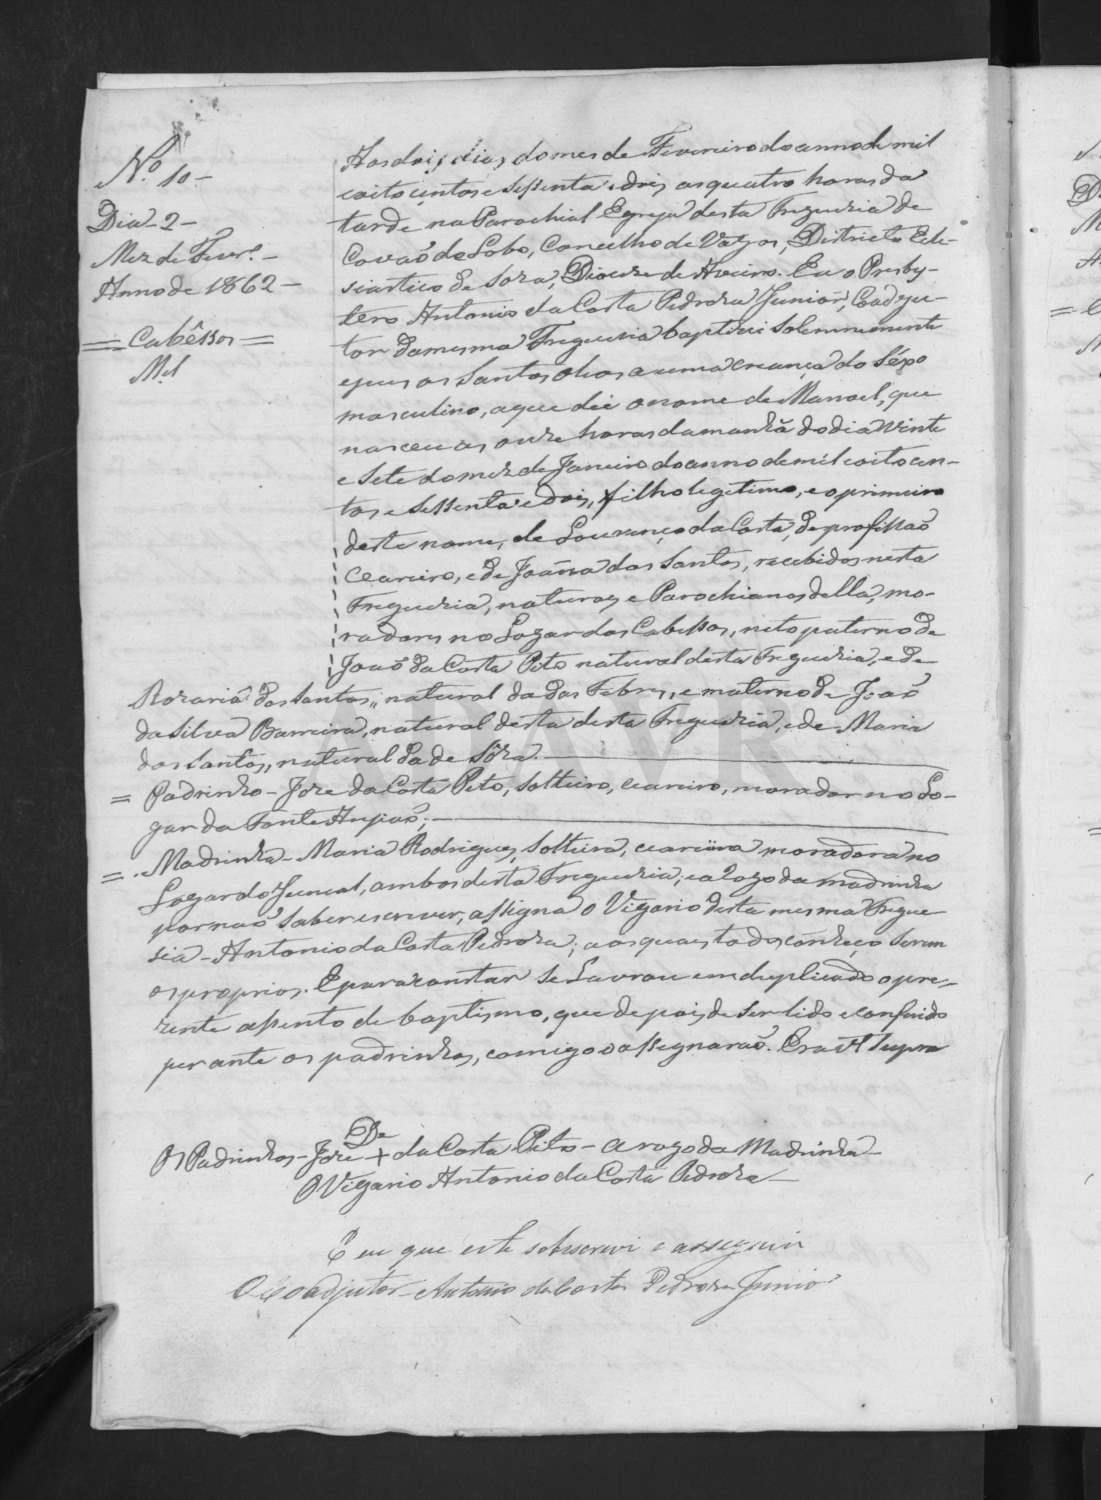 Nº 10 -
Dia - 2 -
Mez de Fever.º -
Anno de 1862 -
= Cabêssos =
M.el
Aos dois dias do mes de Fevereiro do anno de mil
oitocentos e sessenta e dois as quatro horas da
tarde na Parochial Egreja desta Freguezia de
Covaõ do Lobo, Concelho de Vagos, Districto Ecle-
siastico de Soza, Diocese de Aveiro. Eu o Presby-
tero Antonio da Costa Pedroza Junior, Coadju-
tor da mesma Freguezia baptizei solemnemente
e pus os Santos Oleos a uma creança do séxo
masculino, a que dei o nome de Manoel, que
nasceu as onze horas da manhã do dia vinte
e sete do mez de Janeiro do anno de mil oito cen-
tos e sessenta e dois, filho legitimo, e o primeiro
deste nome, de Lourenço da Costa, de profissaõ
ceareiro, e de Joanna dos Santos, recebidos nesta
Freguezia, naturaes e Parochianos della, mo-
radores no Logar dos Cabessos, neto paterno de
Joaõ da Costa Pito natural desta Freguezia, e de
Rozaria dos Santos, natural da das Febres, e materno de Joaõ
da Silva Barreira, natural desta desta Freguezia, e de Maria
dos Santos, natural da de Sôza. -
= Padrinho - Joze da Costa Pito, solteiro, ceareiro, morador no Lo-
gar da Fonte Anjiaõ; -
= Madrinha - Maria Rodrigues, solteira, ceareira moradora no
Logar do Juncal, ambos desta Freguezia; e a rogo da madrinha
por naõ saber escrever, assigna o Vigario desta mesma Fregue
sia - Antonio da Costa Pedroza; aos quaes todos conheço serem
os proprios. E para constar se Lavrou em duplicado o pre-
zente assento de baptismo, que depois de ser lido e conferido
perante os padrinhos, comigo o assegnaraõ. Era ut supra
De
Os Padrinhos - Joze + da Costa Pito - a rogo da Madrinha -
O Vigario Antonio da Costa Pedroza -
E eu que este sobscrevi e assegnei
O Coadjutor - Antonio da Costa Pedroza Junior